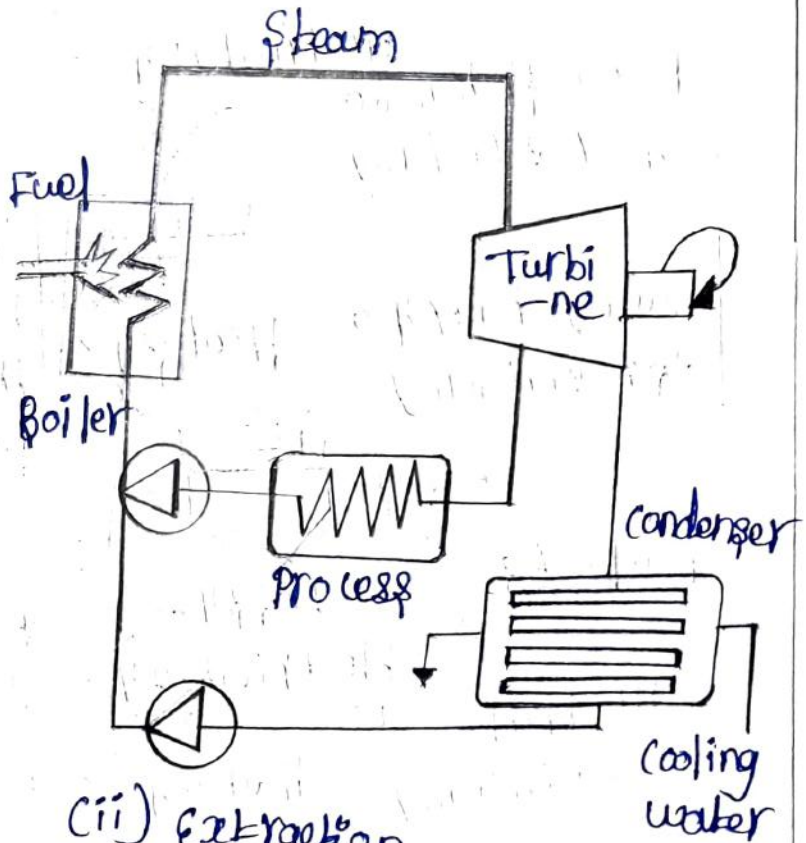 Steam
Fuel
Turbi
-ne
Boiler
Process
Condenser
Cooling
water
(ii) Extraction